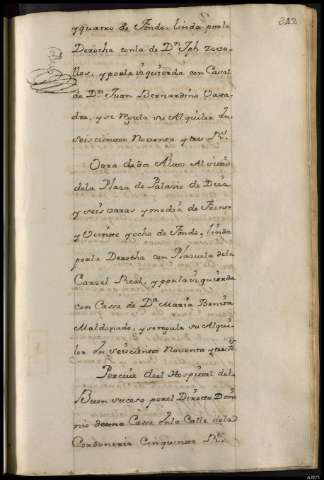 212
y quatro de fondo, linda por la
Derecha con la de Dn. Jph
y por la izquierda con Casa
de Dn. Juan Bernardino
dra, y se regula su Alquiler en
seiscientos Noventa y tres Rs.
Otra de en Alto Al sitio
de la Plaza de Palacio de Diez
y seis varas y media de frente
y Veinte y ocho de fondo, linda
por la Derecha con Plazuela de la
Carzel Real, y por la izquierda
con Casa de Da. Maria Benita
Maldonado, y se regula su Alqui-
ler en seiscientos Noventa y tres Rs.
Percive el Hospital del
Buen suceso por el Directo Domi-
nio de una Casa en la Calle de la
Cordoneria Cinquenta Rs.